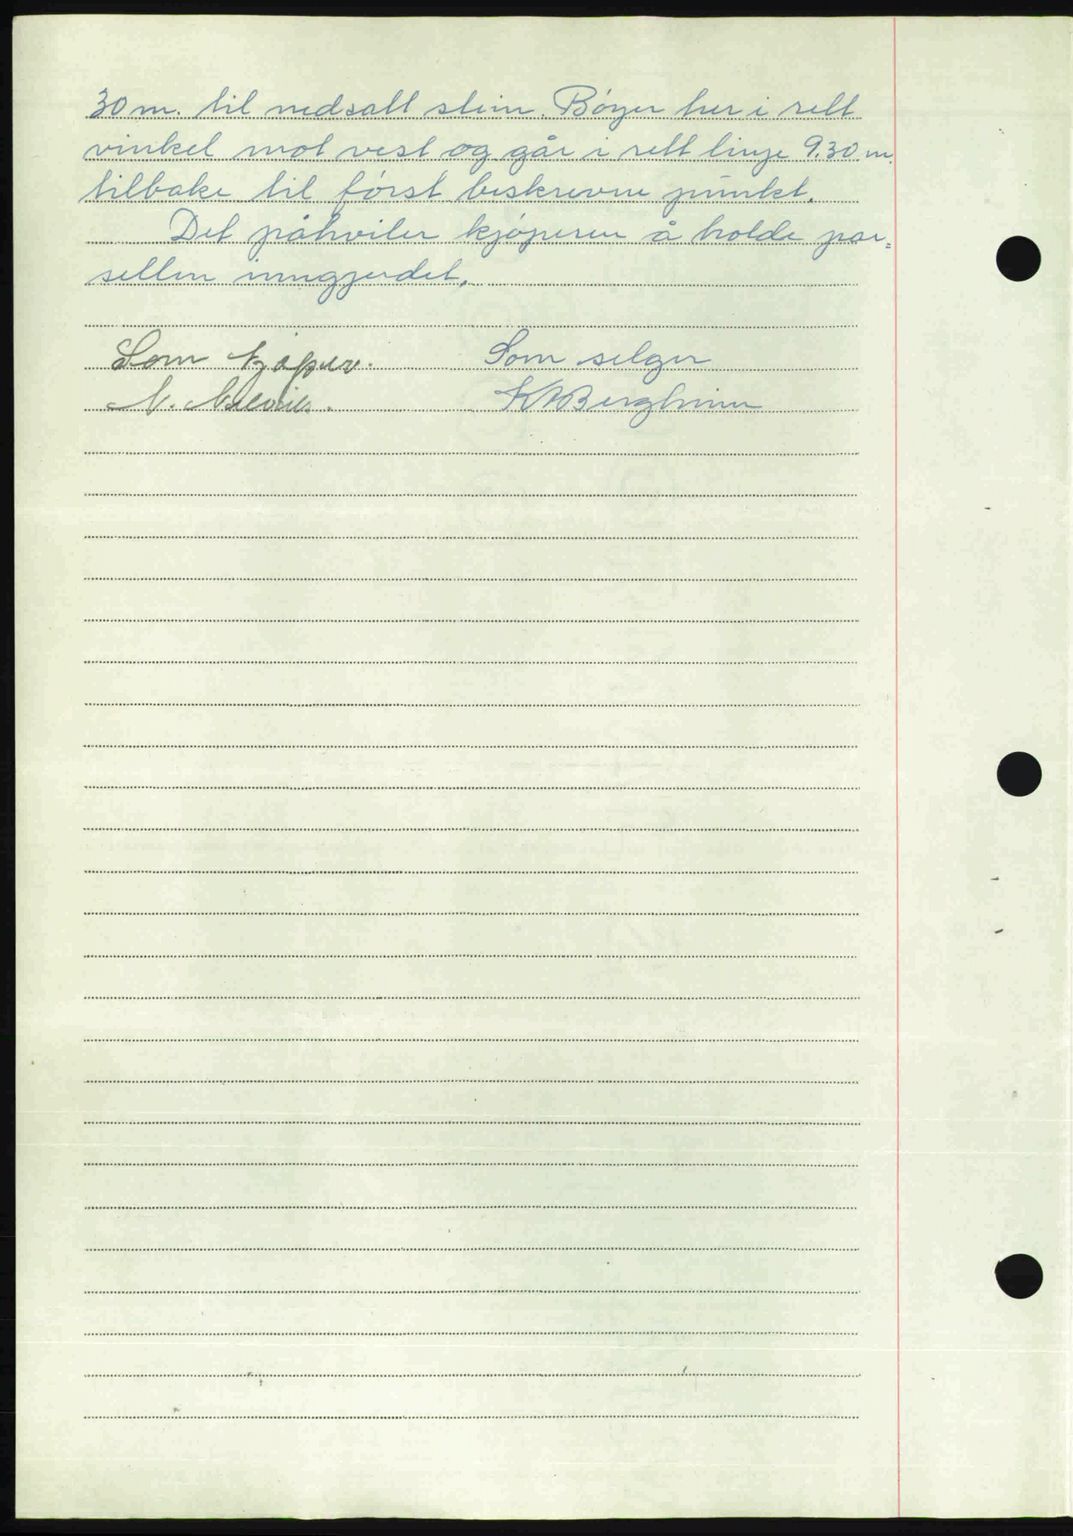 30 m. til nedsatt stein. Bøyer her i rett
vinkel mot vest og går i rett linje 9.30 m.
tilbake til først beskrevne punkt.
Det påhviler kjøperen å holde par=
sellen inngjerdet.
Som kjøper. Som selger
N. K Bergheim